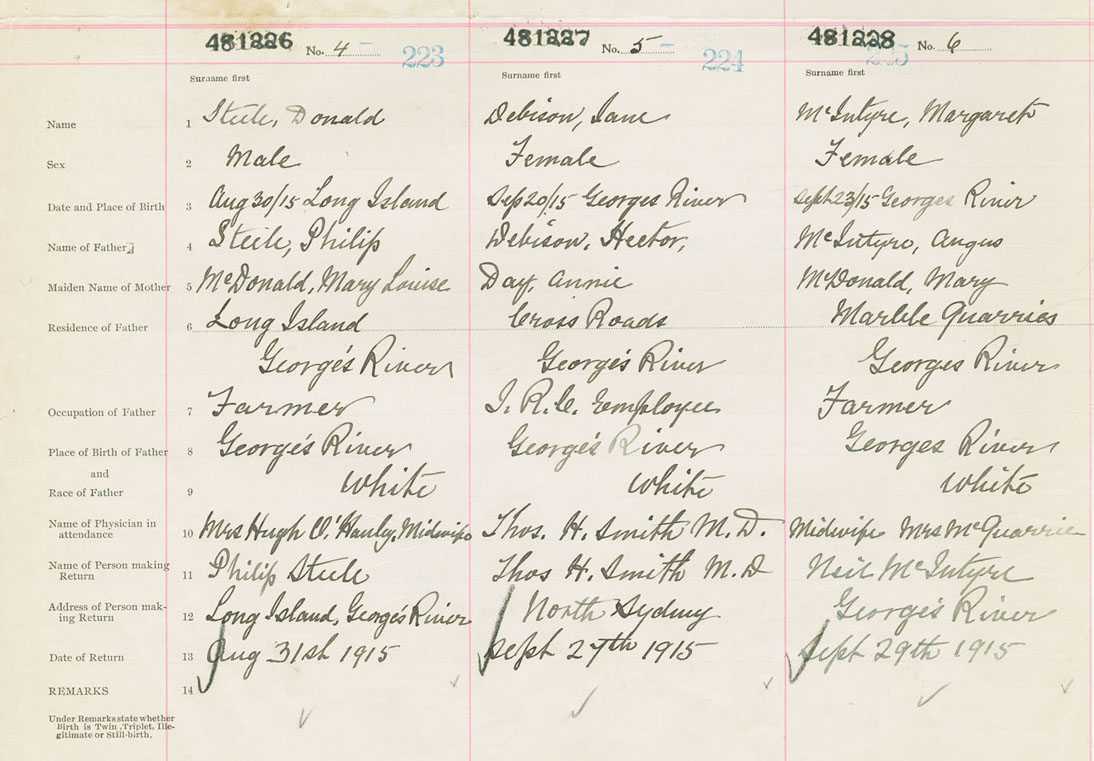 481226 No. 4 223 481227 No. 5 224 481228 No. 6
Surname first Surname first Surname first
Name 1 Steele, Donald Debison, Jane McIntyre, Margaret
Sex 2 Male Female Female
Date and Place of Birth 3 Aug 30/15 Long Island Sep 20/15 Georges River Sept 23/15 Georges River
Name of Father 4 Steele, Philip Debison, Hector, McIntyre, Angus
Maiden Name of Mother 5 McDonald, Mary Louise Day, Annie McDonald, Mary
Residence of Father 6 Long Island Cross Roads Marble Quarries
George's River George's River Georges River
Occupation of Father 7 Farmer I.R.C. Employee Farmer
Place of Birth of Father 8 George's River George's River Georges River
and
Race of Father 9 White White White
Name of Physician in
attendance 10 Mrs Hugh O'Hanley, Midwife Thos. H. Smith M.D. Midwife Mrs McQuarrie
Name of Person making
Return 11 Philip Steele Thos H. Smith M.D Neil McIntyre
Address of Person mak-
ing Return 12 Long Island, George's River North Sydney George's River
Date of Return 13 Aug 31st 1915 Sept 27th 1915 Sept 29th 1915
REMARKS 14
Under Remarks state whether
Birth is Twin, Triplet, Ille-
gitimate or Still-birth.